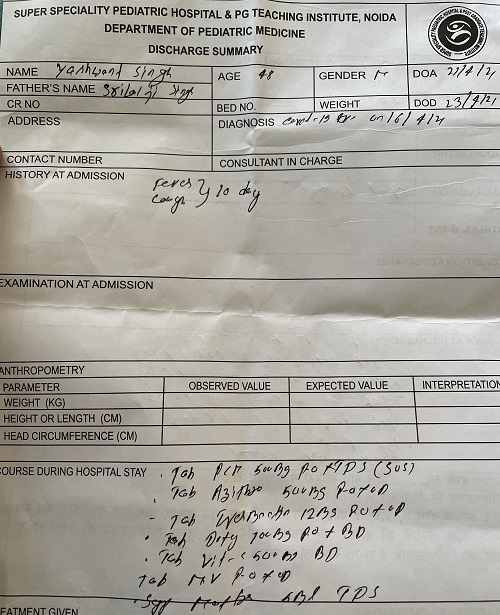 SUPER SPECIALITY PEDIATRIC HOSPITAL & PG TEACHING INSTITUTE, NOIDA
DEPARTMENT OF PEDIATRIC MEDICINE
DISCHARGE SUMMARY
NAME Yashwant Singh AGE 48 GENDER M DOA 21/4/21
FATHER'S NAME Singh
CR NO BED NO. WEIGHT DOD 23/4/21
ADDRESS DIAGNOSIS Covid-19 +ve on 16/4/21
CONTACT NUMBER CONSULTANT IN CHARGE
HISTORY AT ADMISSION
Fever
Cough } 10 day
EXAMINATION AT ADMISSION
ANTHROPOMETRY
PARAMETER OBSERVED VALUE EXPECTED VALUE INTERPRETATION
WEIGHT (KG)
HEIGHT OR LENGTH (CM)
HEAD CIRCUMFERENCE (CM)
COURSE DURING HOSPITAL STAY
. Tab PCM 500mg PO x TDS (SOS)
. Tab Azithro 500mg PO x OD
- Tab 12mg PO x OD
. Tab Doxy 100mg PO x BD
. Tab Vit-C 500mg BD
Tab MV PO x OD
. Syp 5ml TDS
TREATMENT GIVEN